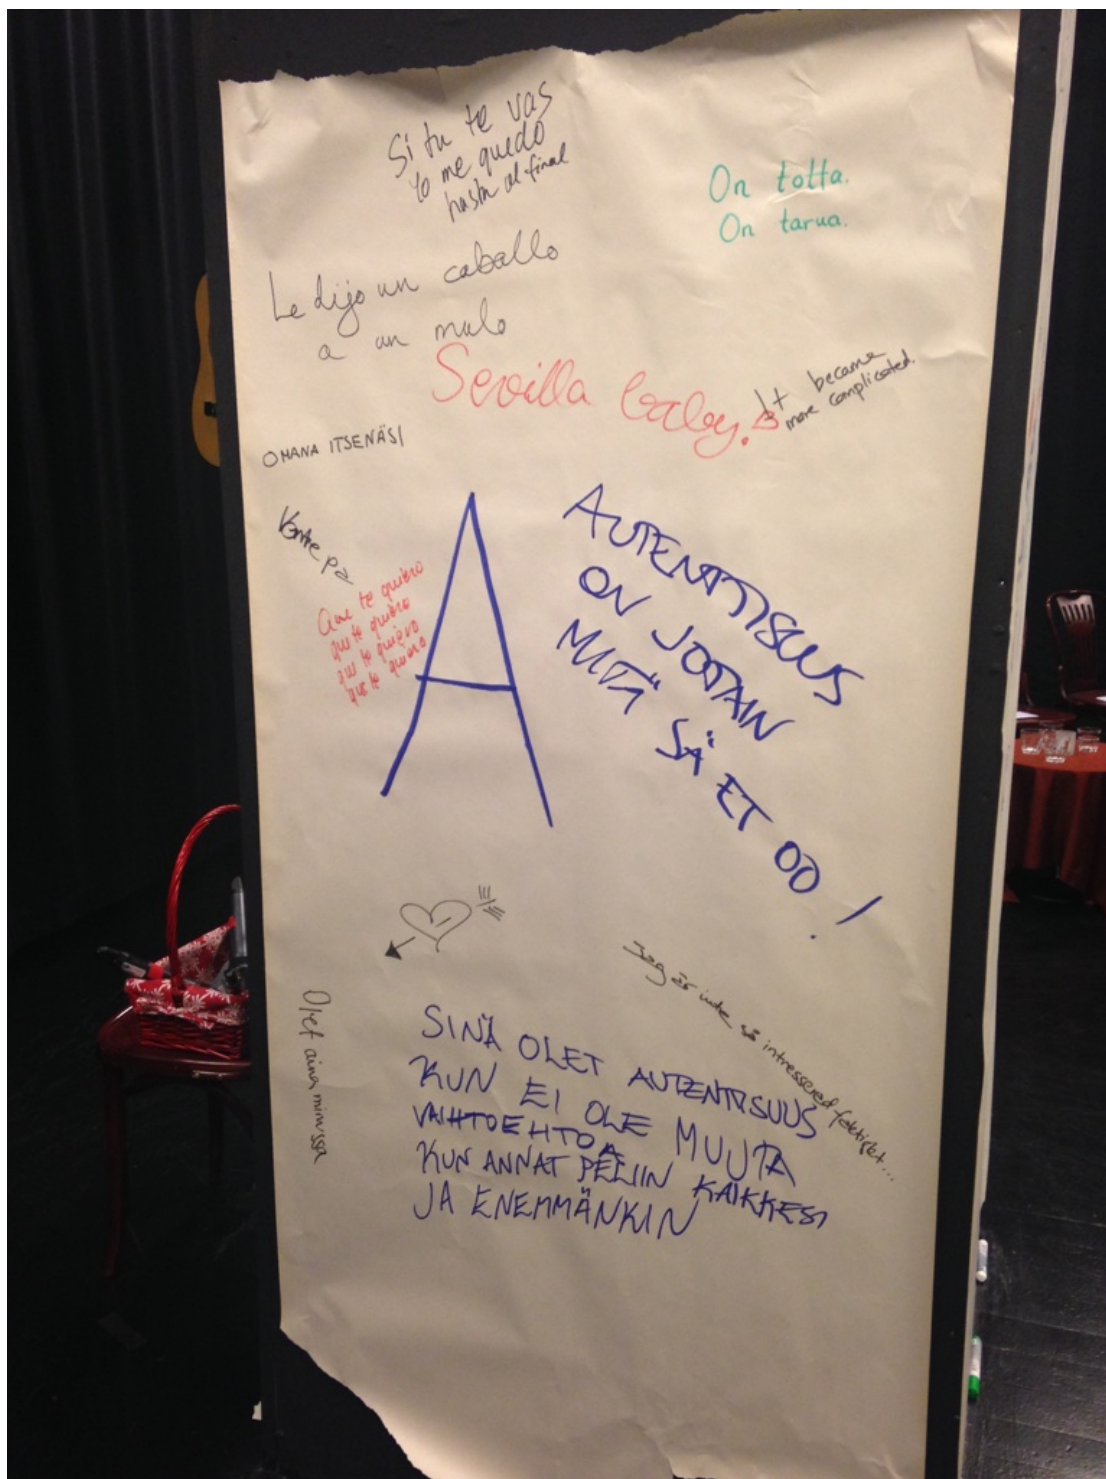 Si tu te vas
Yo me quedo
hasta al final
On totta.
On tarua.
Le dijo un caballo
a un mulo
Sevilla baby.
It became
more complicated.
OMANA ITSENÄSI
Vente pa
Que te quiero
que te quiero
que te quiero
que te quiero
A
AUTENTISUUS
ON JOTAIN
MITÄ SÄ ET OO!
Jag är inte så intresserad faktiskt...
Olet aina minussa
SINÄ OLET AUTENTISUUS
KUN EI OLE MUUTA
VAIHTOEHTOA
KUN ANNAT PELIIN KAIKKESI
JA ENEMMÄNKIN